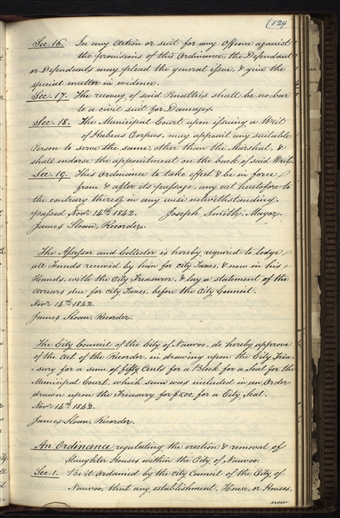 (129)
Sec. 16. In any Action or suit for any offence against
the provisions of this Ordinance, the Defendant
or Defendants may plead the general issue, & give the
special matter in evidence.
Sec. 17. The recovery of said Penalties shall be no bar
to a civil suit for Damages.
Sec. 18. The Municipal Court upon issuing a Writ
of Habeas Corpus, may appoint any suitable
Person to serve the same, other than the Marshal, &
shall endorse the appointment on the back of said Writ.
Sec. 19. This Ordinance to take effect & be in force
from & after its passage, any act heretofore to
the contrary thereof in any wise notwithstanding.
passed Novr. 14th. 1842. Joseph Smith, Mayor.
James Sloan, Recorder.
The Assessor and Collector is hereby required to lodge,
all Funds received by him for city Taxes, & now in his
Hands, with the City Treasurer, & lay a statement of the
arrears due for city Taxes, before the City Council.
Novr. 14th. 1842.
James Sloan Recorder.
The City Council of the City of Nauvoo, do hereby approve
of the Act of the Recorder in drawing upon the City Trea-
sury for a sum of fifty Cents for a Block for a Seal for the
Municipal Court, which sum was included in an Order
drawn upon the Treasury for $2.00, for a City Seal.
Novr. 14th. 1842.
James Sloan Recorder.
An Ordinance regulating the erection & removal of
Slaughter Houses within the City of Nauvoo.
Sec. 1. Be it ordained by the City Council of the City of
Nauvoo, that any establishment, House, or Houses,
now